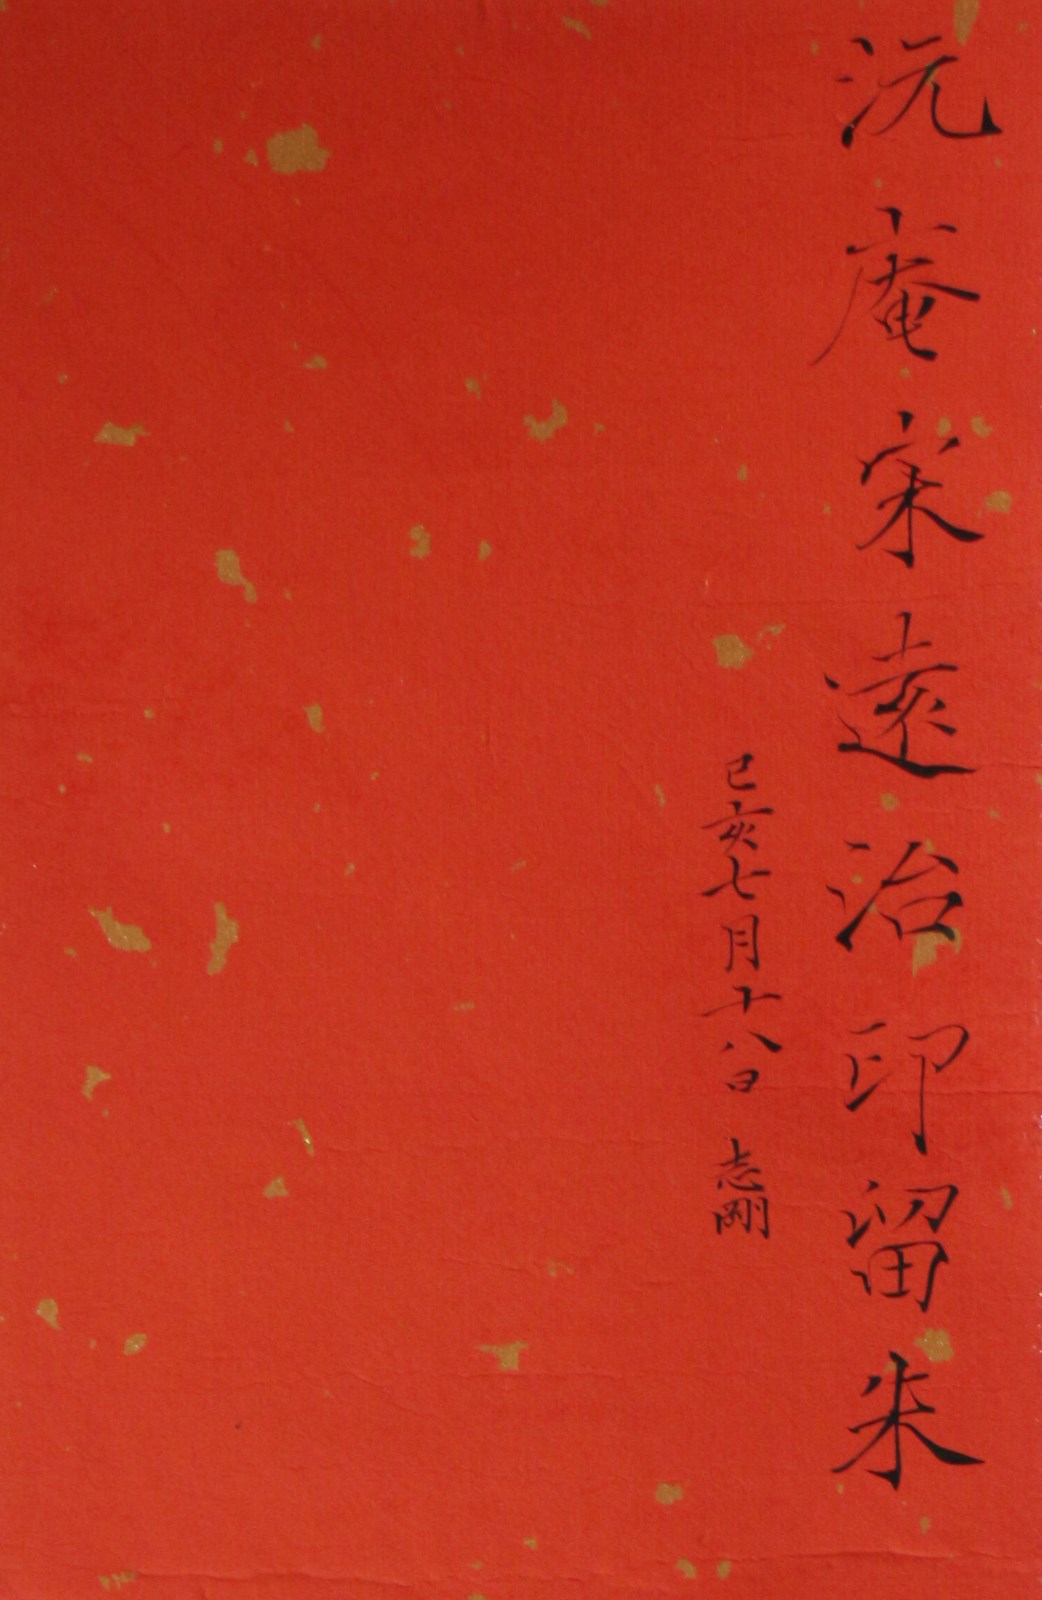 沅庵宋遠治印留朱
己亥七月十八日 志剛